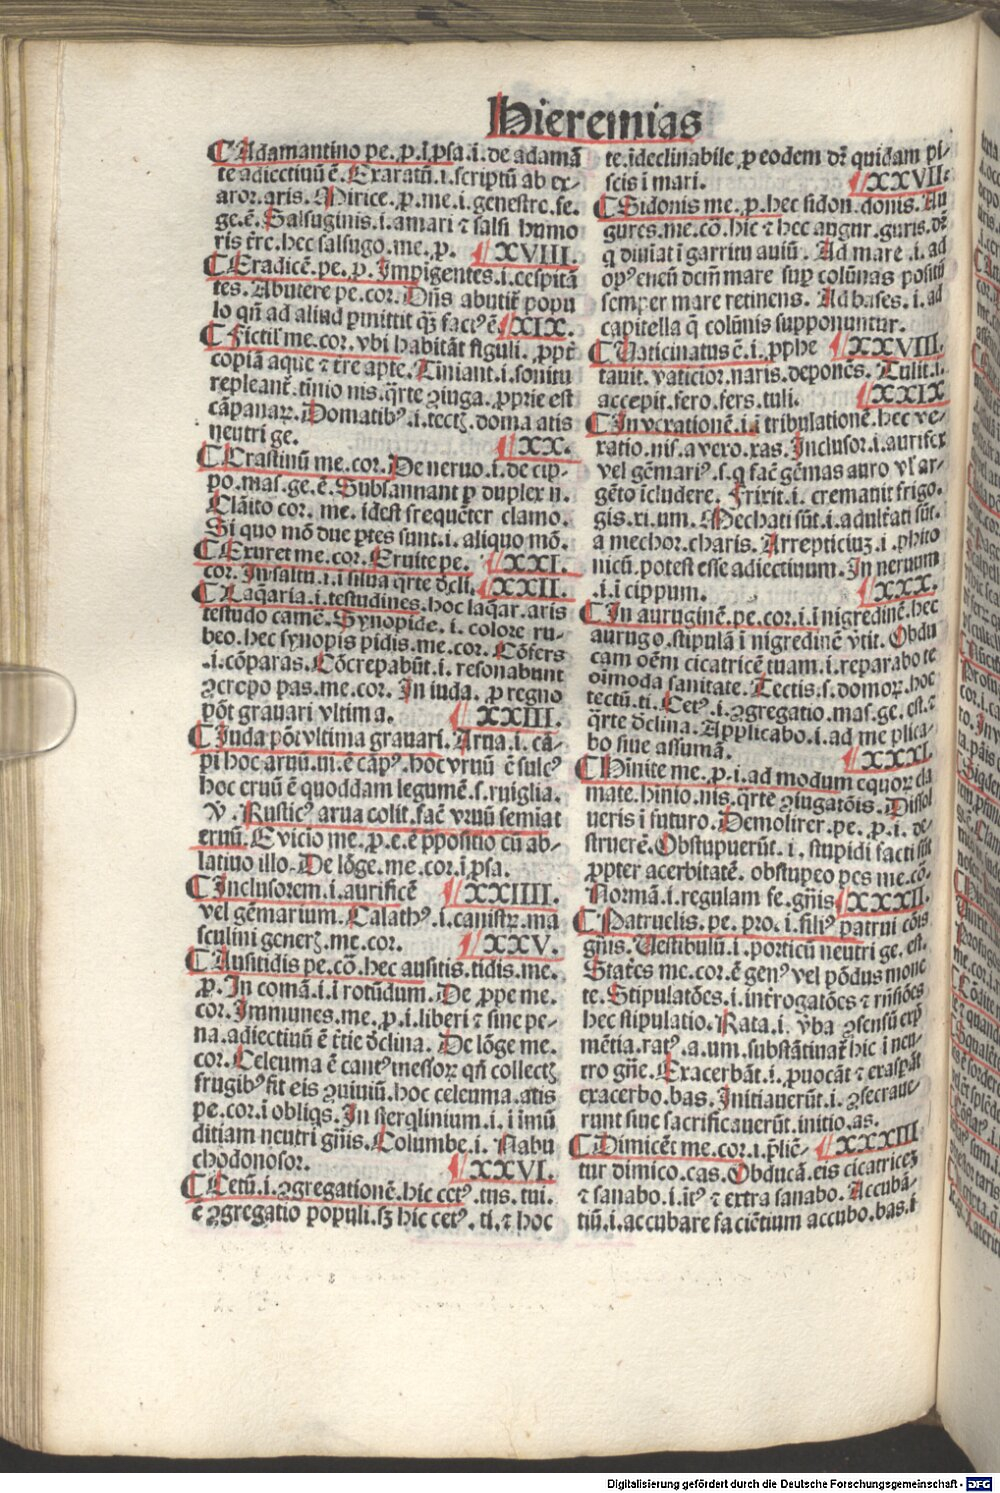 Hieremias
¶ Adamantino pe. p. i ꝑsa .i. de adamã
te adiectiuũ ẽ. Exaratũ .i. scriptũ ab ex-
aror. aris. Mirice. p. me .i. genestre. fe.
ge. ẽ. Salsuginis .i. amari ⁊ salsi humo
ris tr̃e. hec salsugo. me. p. ¶ XVIII.
¶ Eradicẽ. pe. p. Impigentes .i. cespita
tes. Abutere pe. cor. Dñs abutit̃ popu
lo qñ ad aliud ꝑmittit qꝫ factꝰ ẽ. ¶ XIX.
¶ Fictil me. cor. vbi habitãt figuli. ꝓpt̃
copiã aque ⁊ tr̃e apte. Tiniant .i. sonitu
repleant̃. tinio nis. q̃rte ꝯiuga. ꝓprie est
cãpanaꝝ. Domatibꝰ .i. tectꝭ. doma atis
neutri ge. ¶ XX.
¶ Crastinũ me. cor. De neruo .i. de cip-
po. mas. ge. ẽ. Subsannant ꝑ duplex n.
Clãito cor. me. idest frequẽter clamo.
Si quo mõ due ꝑtes sunt .i. aliquo mõ.
¶ Exuret me. cor. Eruite pe. ¶ XXI.
cor. In saltu .i. i silua q̃rte d̃cli. ¶ XXII.
¶ Laq̃aria .i. testudines. hoc laq̃ar. aris
testudo camẽ. Synopide .i. colore ru-
beo. hec synopis pidis. me. cor. Cõfers
.i. cõparas. Cõcrepabũt .i. resonabunt
ꝯcrepo pas. me. cor. In iuda. ꝓ regno
põt grauari vltima. ¶ XXIII.
¶ Iuda põt vltima grauari. Arua .i. cã-
pi hoc aruũ. ui. ẽ cãpꝰ. hoc vruũ ẽ sulcꝰ
hoc eruũ ẽ quoddam legumẽ. s. ruiglia.
V̊. Rusticꝰ arua colit. facẽ vruũ semiat
eruũ. Euicio me. p. e. ẽ p̃positio cũ ab-
latiuo illo. De lõge. me. cor. i ꝑsa.
¶ Inclusorem .i. aurificẽ ¶ XXIIII.
vel gẽmarium. Calathꝰ .i. canistrꝝ. ma
sculini generꝭ. me. cor. ¶ XXV.
¶ Ausitidis pe. cõ. hec ausitis. tidis. me.
p. In comã .i. i rotũdum. De ꝓpe me.
cor. Immunes. me. p. i. liberi ⁊ sine pe-
na. adiectiuũ ẽ t̃tie d̃clina. De lõge me.
cor. Celeuma ẽ cantꝰ messoꝝ qñ collectꝭ
frugibꝰ fit eis ꝯuiuiũ. hoc celeuma. atis
pe. cor. i obliqs. In sterqlinium .i. i imũ
ditiam neutri gñis. Columbe .i. Nabu
chodonosor. ¶ XXVI.
¶ Cetũ .i. ꝯgregationẽ. hic cetꝰ. tus. tui.
ẽ ꝯgregatio populi. sꝫ hic cetꝰ. ti. ⁊ hoc
te. ideclinabile. ꝓ eodem dr̃ quidam pi-
scis i mari. ¶ XXVII.
¶ Sidonis me. p. hec sidon. donis. Au
gures. me. cõ. hic ⁊ hec augur. guris. dr̃
q diuiat i garritu auiũ. Ad mare .i. ad
opꝰ eneũ dcm̃ mare suꝑ colũnas positũ
semper mare retinens. Ad bases .i. ad
capitella q̃ colũnis supponuntur.
¶ Vaticinatus ẽ .i. ꝓphe ¶ XXVIII.
tauit. vaticior. naris. deponẽs. Tulit .i.
accepit. fero. fers. tuli. ¶ XXIX
¶ In vexationẽ .i. i tribulationẽ. hec ve-
xatio nis. a vexo. xas. Inclusor .i. aurifex
vel gẽmariꝰ. s. q facẽ gẽmas auro vl̃ ar-
gẽto icludere. Frixit .i. cremauit frigo.
gis. xi. um. Mechati sũt .i. adult̃ati sũt.
a mechor. charis. Arrepticiuꝫ .i. phito
nicũ. potest esse adiectiuum. In neruum
.i. i cippum. ¶ XXX.
¶ In auruginẽ. pe. cor. i. i nigredinẽ. hec
aurugo. stipulã i nigredinẽ v̾tit. Obdu
cam oẽm cicatricẽ tuam .i. reparabo te
oĩmoda sanitate. Tectis. s. domoꝝ. hoc
tectũ. ti. Cetꝰ .i. ꝯgregatio. mas. ge. est. ⁊
q̃rte d̃clina. Applicabo .i. ad me plica-
bo siue assumã. ¶ XXXI.
¶ Hinite me. p. i. ad modum equoꝝ cla
mate. hinio. nis. q̃rte ꝯiugatõis. Dissol
ueris i futuro. Demolirer. pe. p. i. de-
struerẽ. Obstupuerũt .i. stupidi facti sũt
ꝓpter acerbitatẽ. obstupeo pes me. cõ.
Normã .i. regulam fe. gñis. ¶ XXXII.
¶ Patruelis. pe. pro. i. filiꝰ patrui cõis
gñis. Vestibulũ .i. porticũ neutri ge. est.
Stat̃es me. cor. ẽ genꝰ vel põdus mone
te. Stipulatões .i. int̃rogatões ⁊ rñsiões
hec stipulatio. Rata .i. v̾ba ꝯsensũ exp̃
mẽtia. ratꝰ. a. um. substãtiuat̃ hic i neu-
tro gñe. Exacerbãt .i. ꝓuocãt ⁊ exasꝑãt
exacerbo. bas. Initiauerũt .i. ꝯsecraue-
runt siue sacrificauerũt. initio. as.
¶ Dimicẽt me. cor. i. p̃licẽ- ¶ XXXIII
tur dimico. cas. Obducã. eis cicatriceꝫ
⁊ sanabo .i. itꝰ ⁊ extra sanabo. Accubã-
tiũ .i. accubare faciẽtium accubo. bas. i
Digitalisierung gefördert durch die Deutsche Forschungsgemeinschaft - DFG